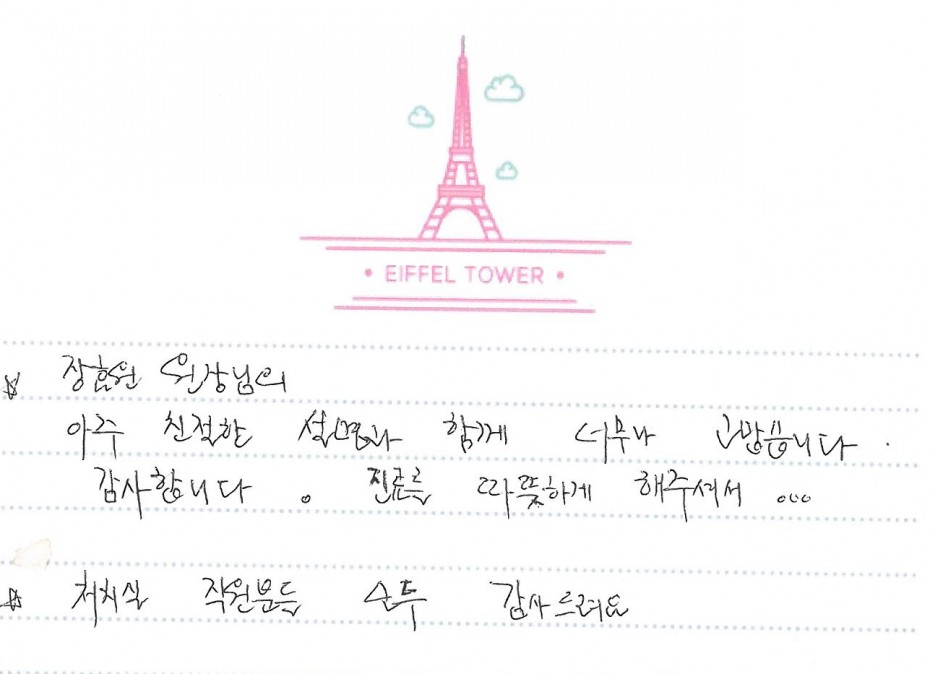 • EIFFEL TOWER •
☆ 장효원 원장님의
아주 친절한 설명과 함께 너무나 고맙습니다.
감사합니다. 진료를 따뜻하게 해주셔서 ...
☆ 처치실 직원분들 모두 감사드려요